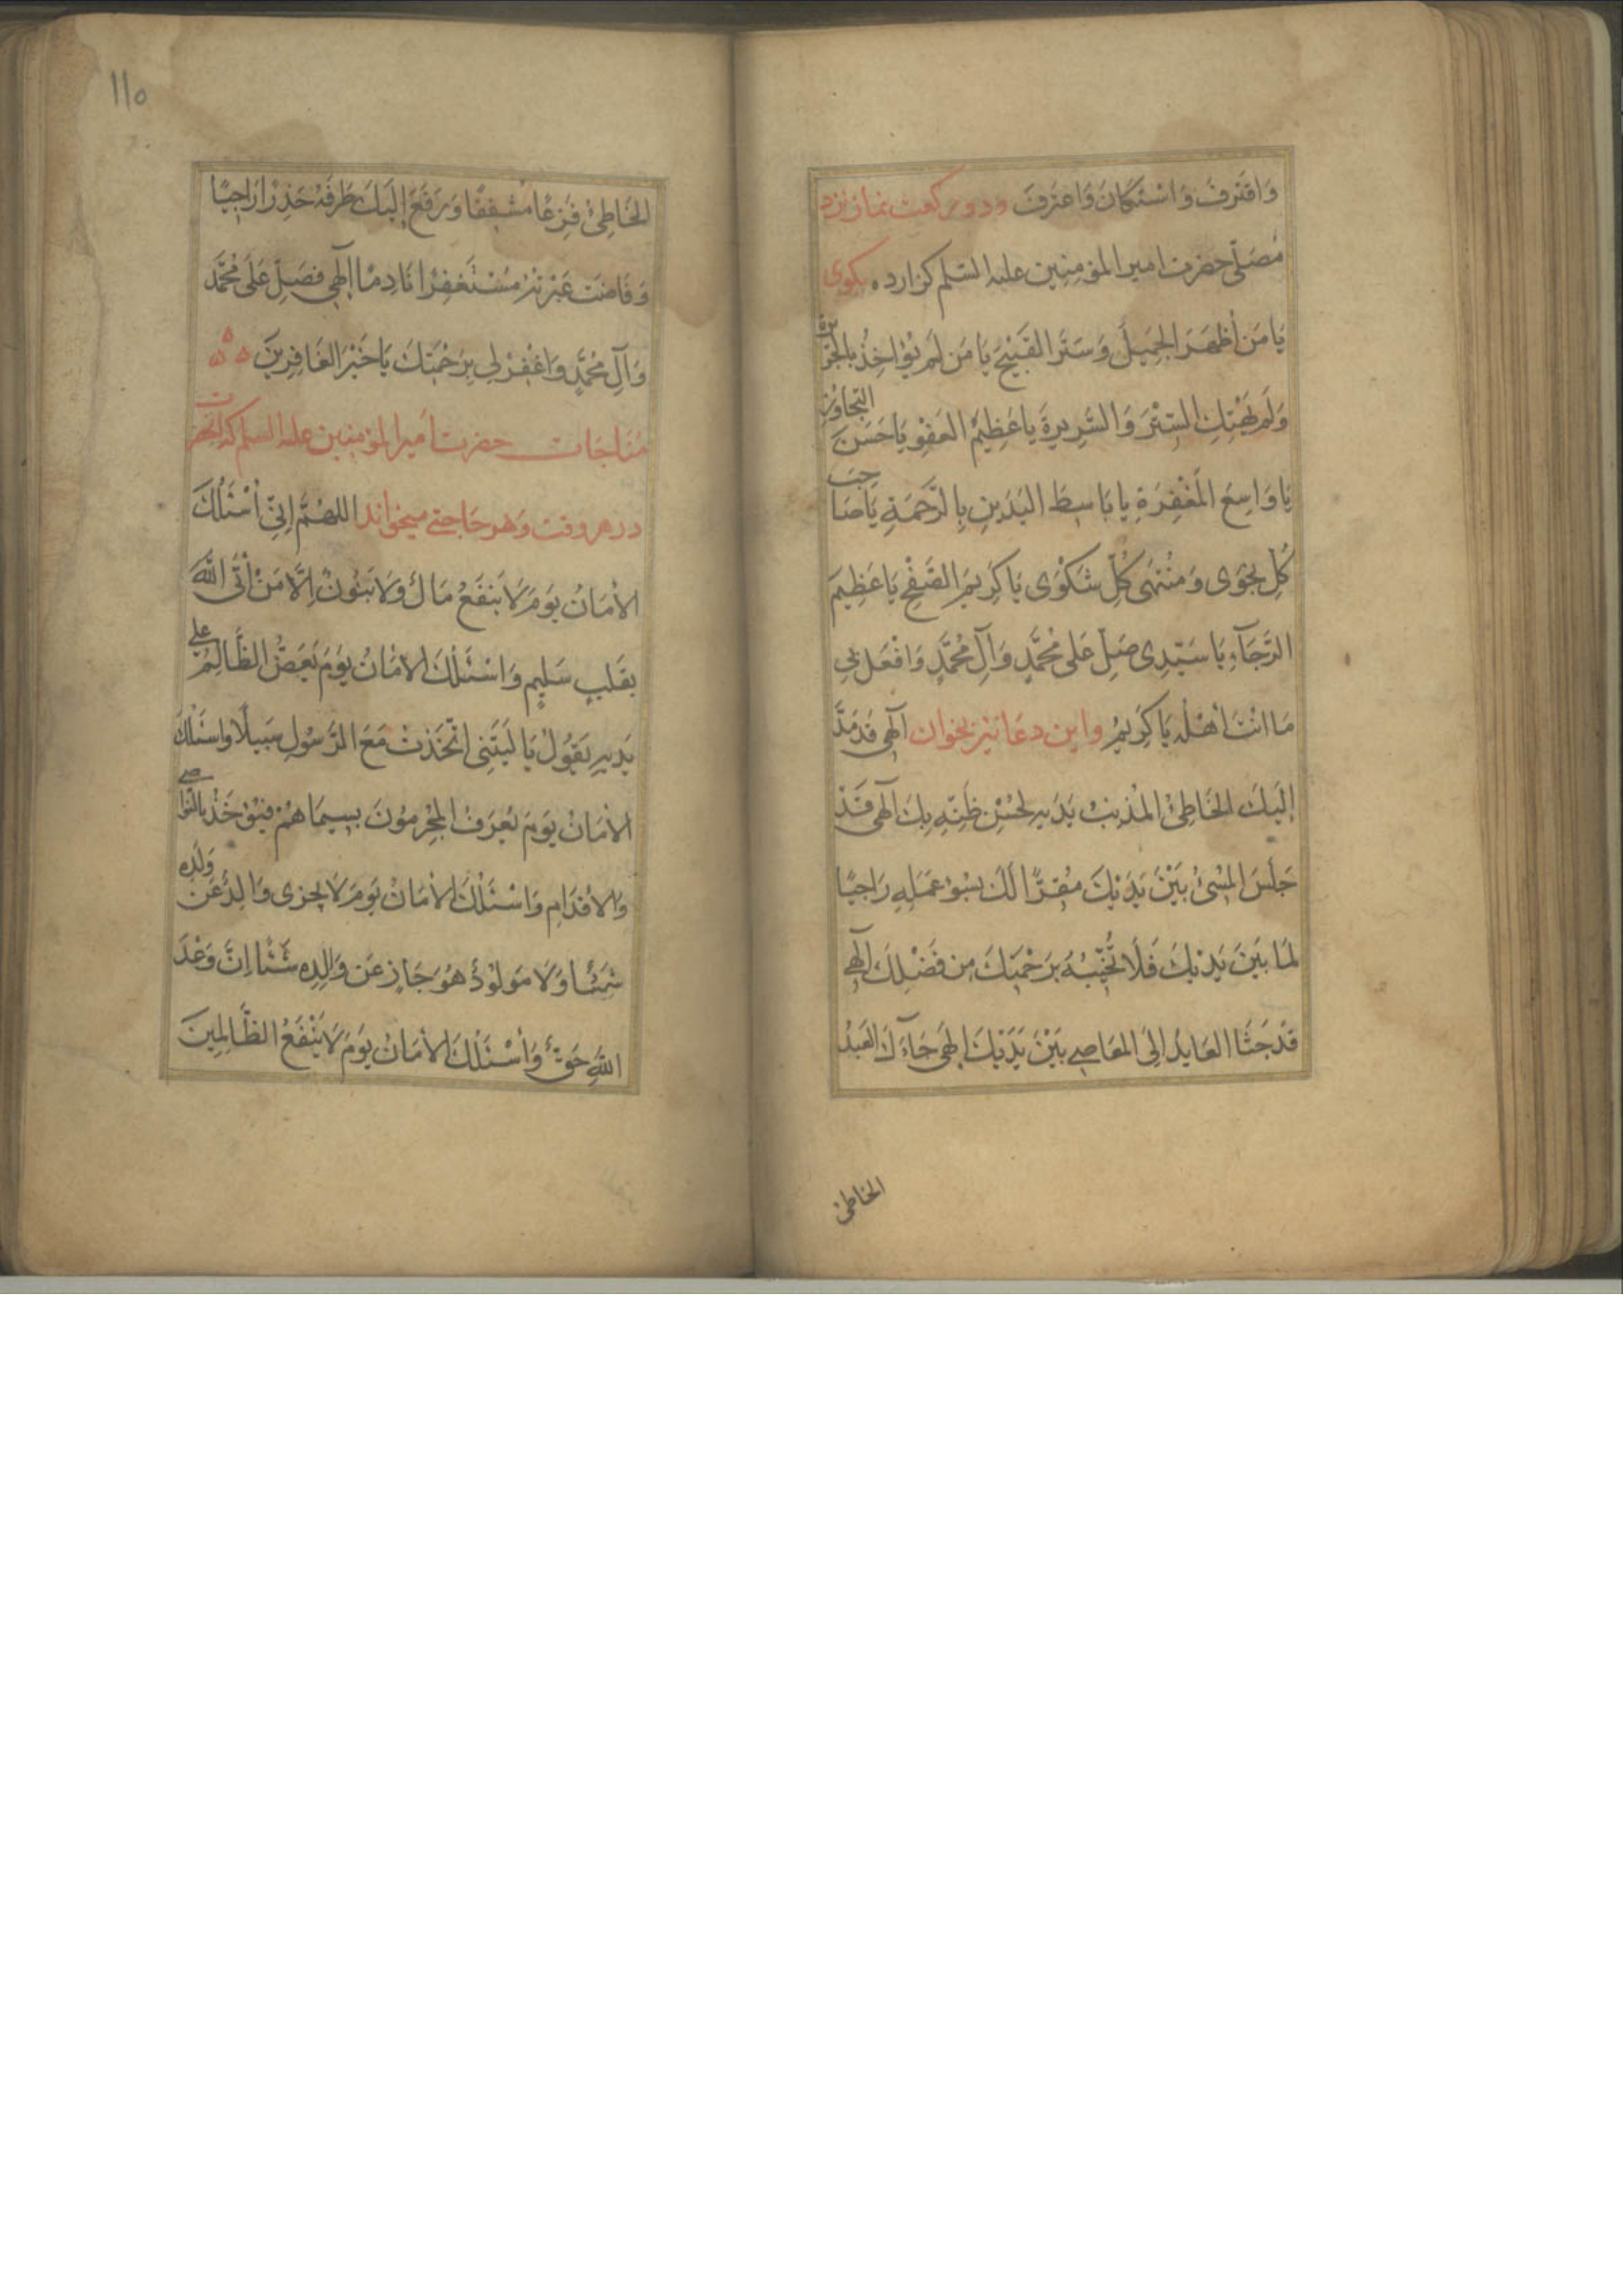 وَاقْتَرَفَ وَاسْتَكَانَ وَاعْتَرَفَ ودو ركعت نماز نزد
مُصَلّى حضرت امير المؤمنين عليه السّلم كزارده بكوى
يَا مَنْ أَظْهَرَ الجَمِيلَ وَسَتَرَ القَبِيْحَ يَا مَن لَم يُؤاخِذْ بِالجَرِيرَةِ
وَلَم يَهْتِكِ السِتْرَ وَالسَّرِيرَةَ يا عَظِيمُ العَفْوِ يَا حَسَنَ التّجاوزِ
يَا وَاسِعَ المَغْفِرَةِ يا بَاسِطَ اليَدَينِ بِالرَّحْمَةِ يَا صَاحِبَ
كُلِّ نَجْوَى وَمُنْتَهَى كُلِّ شَكْوَى يَا كَرِيمَ الصَّفْحِ يَا عَظِيمَ
الرَّجَآءِ يَا سَيِّدِى صَلِّ عَلى مُحَمَّدٍ وَآلِ مُحَمَّدٍ وَافْعَل بِي
مَا انْتَ أَهْلُه يَا كَرِيمُ واين دعا نيز بخوان آلهى قَد مَدَّ
إِلَيكَ الخَاطِئُ المُذنِبُ يَدَيهِ لحُسْنِ ظَنِّهِ بِكَ آلهى قَدْ
جَلَسَ المُسِئُ بَيْنَ يَدَيْكَ مُقِرًّا لَكَ بسُوءِ عَمَلِهِ رَاجيًا
لمَا بَيْنَ يَدَيْكَ فَلَا تُخَيِّبْهُ بَرَحْمَتِكَ مِن فَضْلِكَ آلهى
قَدْ جَثَا العَايدُ الِىَ المعَاصى بَيْنَ يَدَيْكَ الهَى جَآءَكَ العَبدُ
الخاطئ
١١٥
الخَاطِئُ فَزِعًا مُشفِقًا وَرَفَعَ إلَيكَ طَرفَهُ حَذِرًا رَاجِيًا
وَفَاضَت عَبْرَتُهُ مُسْتَغفِرًا نَادِمًا الهِي فَصَلِّ عَلَى مُحَمَّد
وَآلِ مُحَمَّدٍ وَاغْفِرْ لي بِرَحْمَتِكَ يَا خَيْرَ الغَافِرِينَ ۵ ۵ ۵
مُنَاجَات حضرت أمير المؤمنين عليه السلم كه انحضرت
در هر وقت وَهر حَاجتى ميخواند اللهُمَّ اِنِّي أسْئَلُكَ
الأَمَانَ يَوَمَ لَا يَنفَعُ مَالٌ وَلَا بَنُونٌ اِلَّا مَنْ أَتَى اللّهَ
بِقَلبٍ سَلِيمٍ وَاسْئَلُكَ الأَمَانَ يَوَمَ يَعَضُّ الظَّالِمُ على
يَدَيهِ يَقُولُ يَا لَيتَنِى اتّخَذتُ مَعَ الرَّسُولِ سَبِيلًا واسْئَلُكَ
الأَمَانَ يَومَ يُعرَفُ المُجْرِمُونَ بِسِيمَاهُمْ فَيُؤخَذُ بِالنَّواصى
وَالأقدَامِ وَاسْئَلُكَ الأمَانَ يَوَمَ لَا يَجزِى وَالِدٌ عَن وَلَدِه
شَيئًا وَلَا مَولُوْدٌ هُوَ جَازٍ عَن وَالِدِهِ شَيْئًا اِنَّ وَعْدَ
اللهِ حَقٌّ وَأَسْئَلُكَ الأَمَانَ يَوَمَ لَا يَنْفَعُ الظَّالِمِينَ